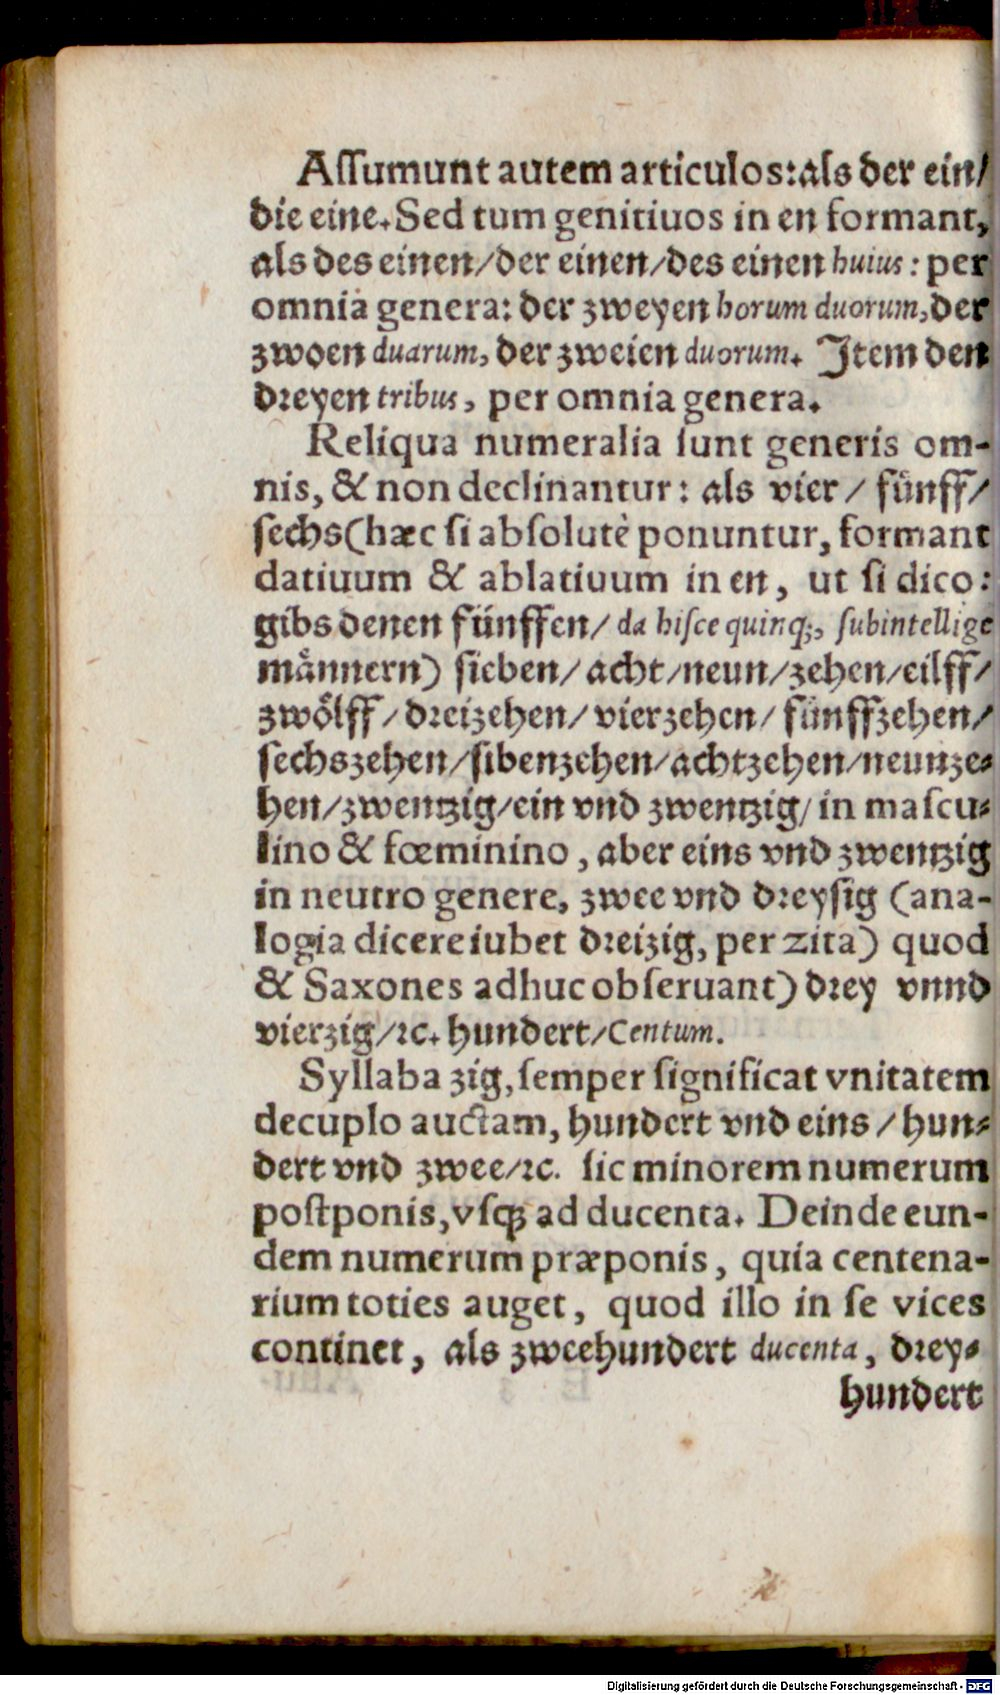 Aſſumunt autem articulos: als der ein/
die eine. Sed tum genitiuos in en formant,
als des einen/der einen/des einen huius: per
omnia genera: der zweyen horum duorum, der
zwoen duarum, der zweien duorum. Jtem den
dꝛeyen tribus, per omnia genera.
Reliqua numeralia ſunt generis om-
nis, & non declinantur: als vier / fuͤnff/
ſechs(hæc ſi abſolutè ponuntur, formant
datiuum & ablatiuum in en, ut ſi dico:
gibs denen fünffen/ da hiſce quinq;, ſubintellige
maͤnnern) ſieben/ acht/neun/zehen/eilff/
zwoͤlff/dꝛeizehen/vierzehen/fünffzehen/
ſechszehen/ſibenzehen/achtzehen/neunze⸗
hen/zwentzig/ein vnd zwentzig/ in maſcu⸗
lino & fœminino, aber eins vnd zwentzig
in neutro genere, zwee vnd dꝛeyſig (ana-
logia dicere iubet dꝛeizig, per zita) quod
& Saxones adhuc obſeruant) dꝛey vnnd
vierzig/ꝛc. hundert/Centum.
Syllaba zig, ſemper ſignificat vnitatem
decuplo auctam, hundert vnd eins/hun⸗
dert vnd zwee/ꝛc. ſic minorem numerum
poſtponis, vſqꝫ ad ducenta. Deinde eun-
dem numerum præponis, quia centena-
rium toties auget, quod illo in ſe vices
continet, als zweehundert ducenta, dꝛey⸗
hundert
Digitalisierung gefördert durch die Deutsche Forschungsgemeinschaft - DFG